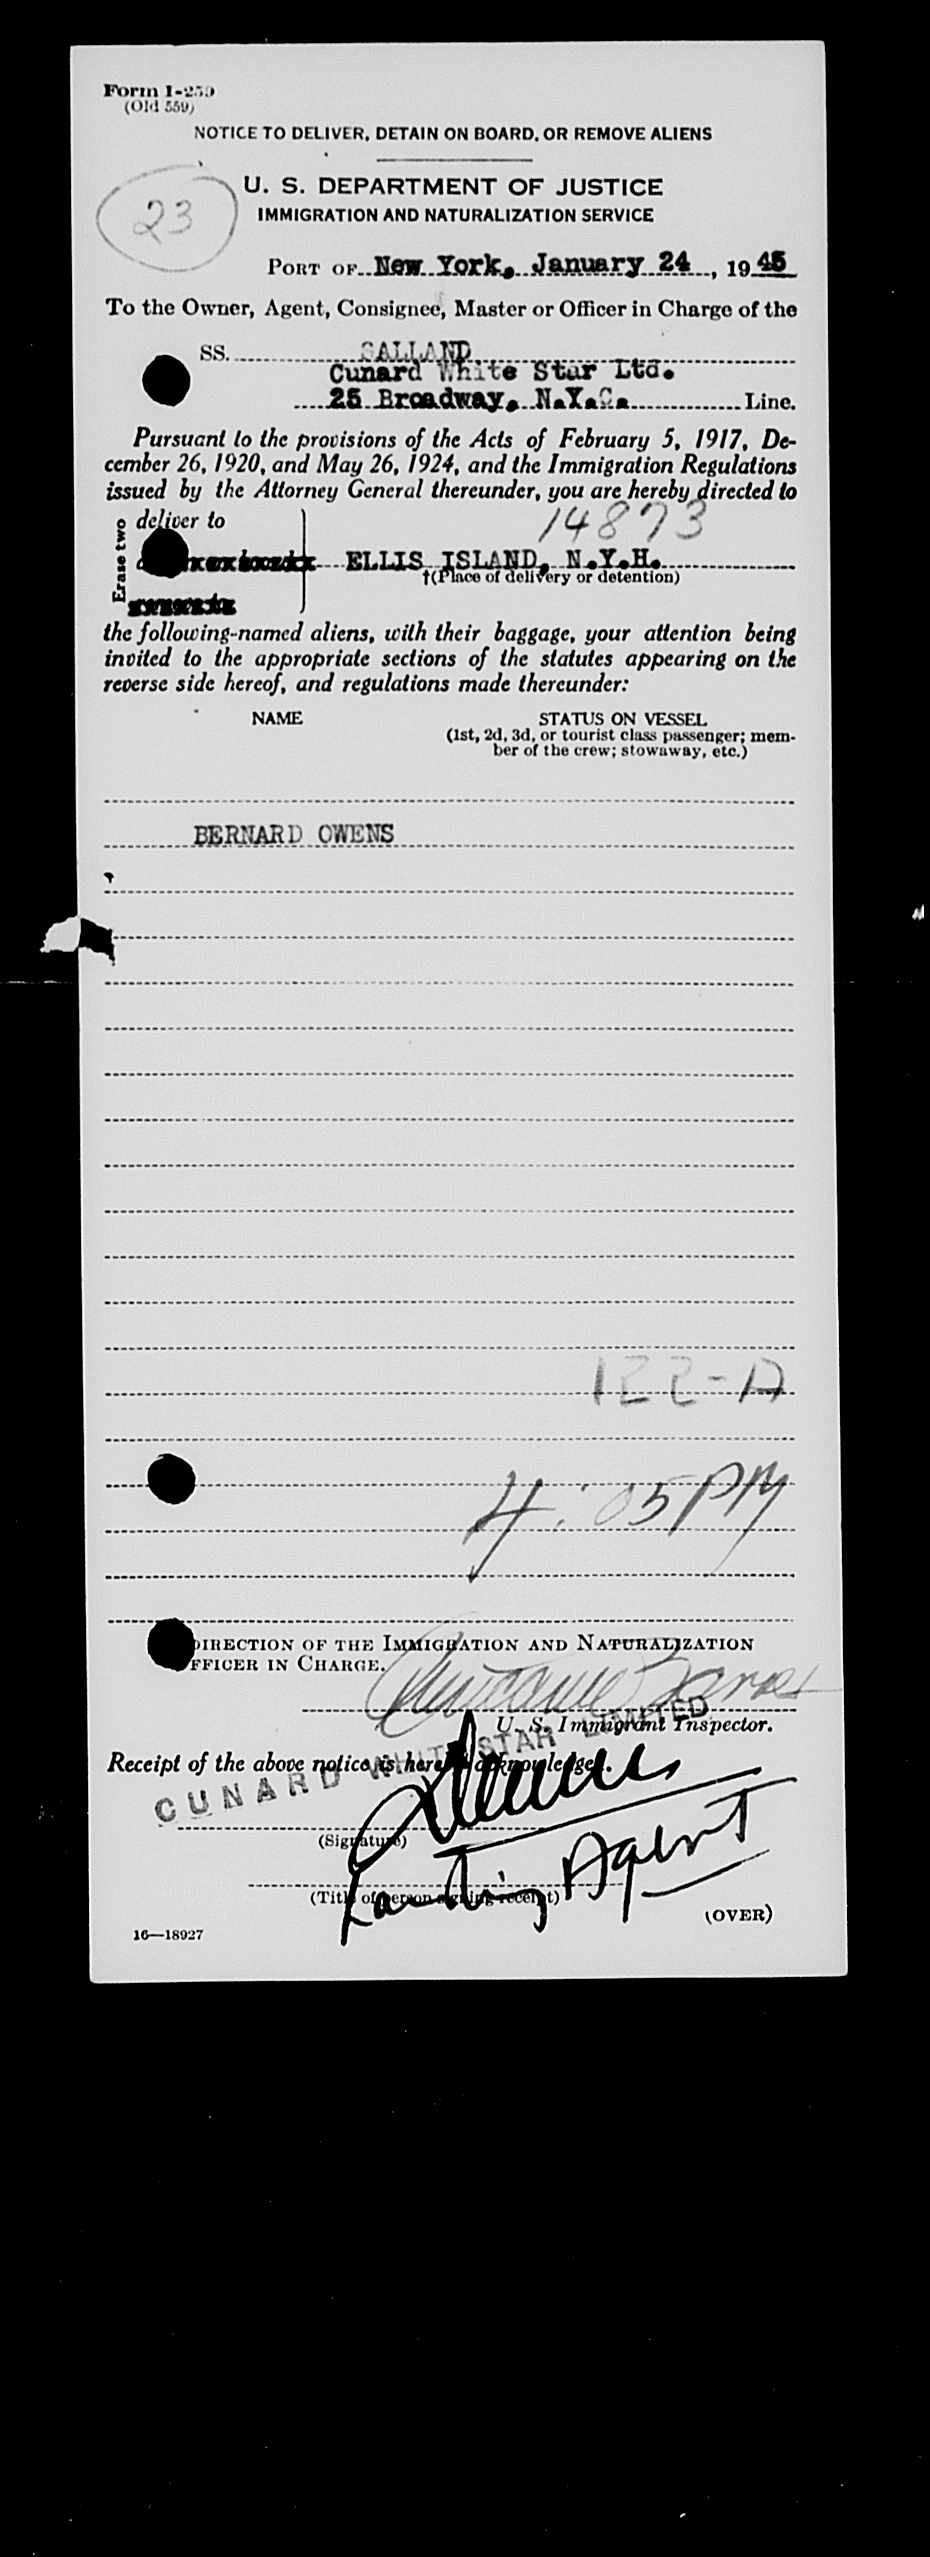 Form I-259
(Old 559)
NOTICE TO DELIVER, DETAIN ON BOARD, OR REMOVE ALIENS
23
U. S. DEPARTMENT OF JUSTICE
IMMIGRATION AND NATURALIZATION SERVICE
PORT OF New York, January 24, 1945
To the Owner, Agent, Consignee, Master or Officer in Charge of the
SS. SALLAND
Cunard White Star Ltd.
25 Broadway, N.Y.C. Line.
Pursuant to the provisions of the Acts of February 5, 1917, De-
cember 26, 1920, and May 26, 1924, and the Immigration Regulations
issued by the Attorney General thereunder, you are hereby directed to
14873
Erase two
deliver to
ELLIS ISLAND, N.Y.H.
†(Place of delivery or detention)
the following-named aliens, with their baggage, your attention being
invited to the appropriate sections of the statutes appearing on the
reverse side hereof, and regulations made thereunder:
NAME STATUS ON VESSEL
(1st, 2d, 3d, or tourist class passenger; mem-
ber of the crew; stowaway, etc.)
BERNARD OWENS
122-A
4:05 PM
DIRECTION OF THE IMMIGRATION AND NATURALIZATION
OFFICER IN CHARGE.
U. S. Immigrant Inspector.
CUNARD WHITE STAR LIMITED
Receipt of the above notice is hereby acknowledged.
(Signature)
Landing Agent
(Title of person signing receipt)
(OVER)
16—18927